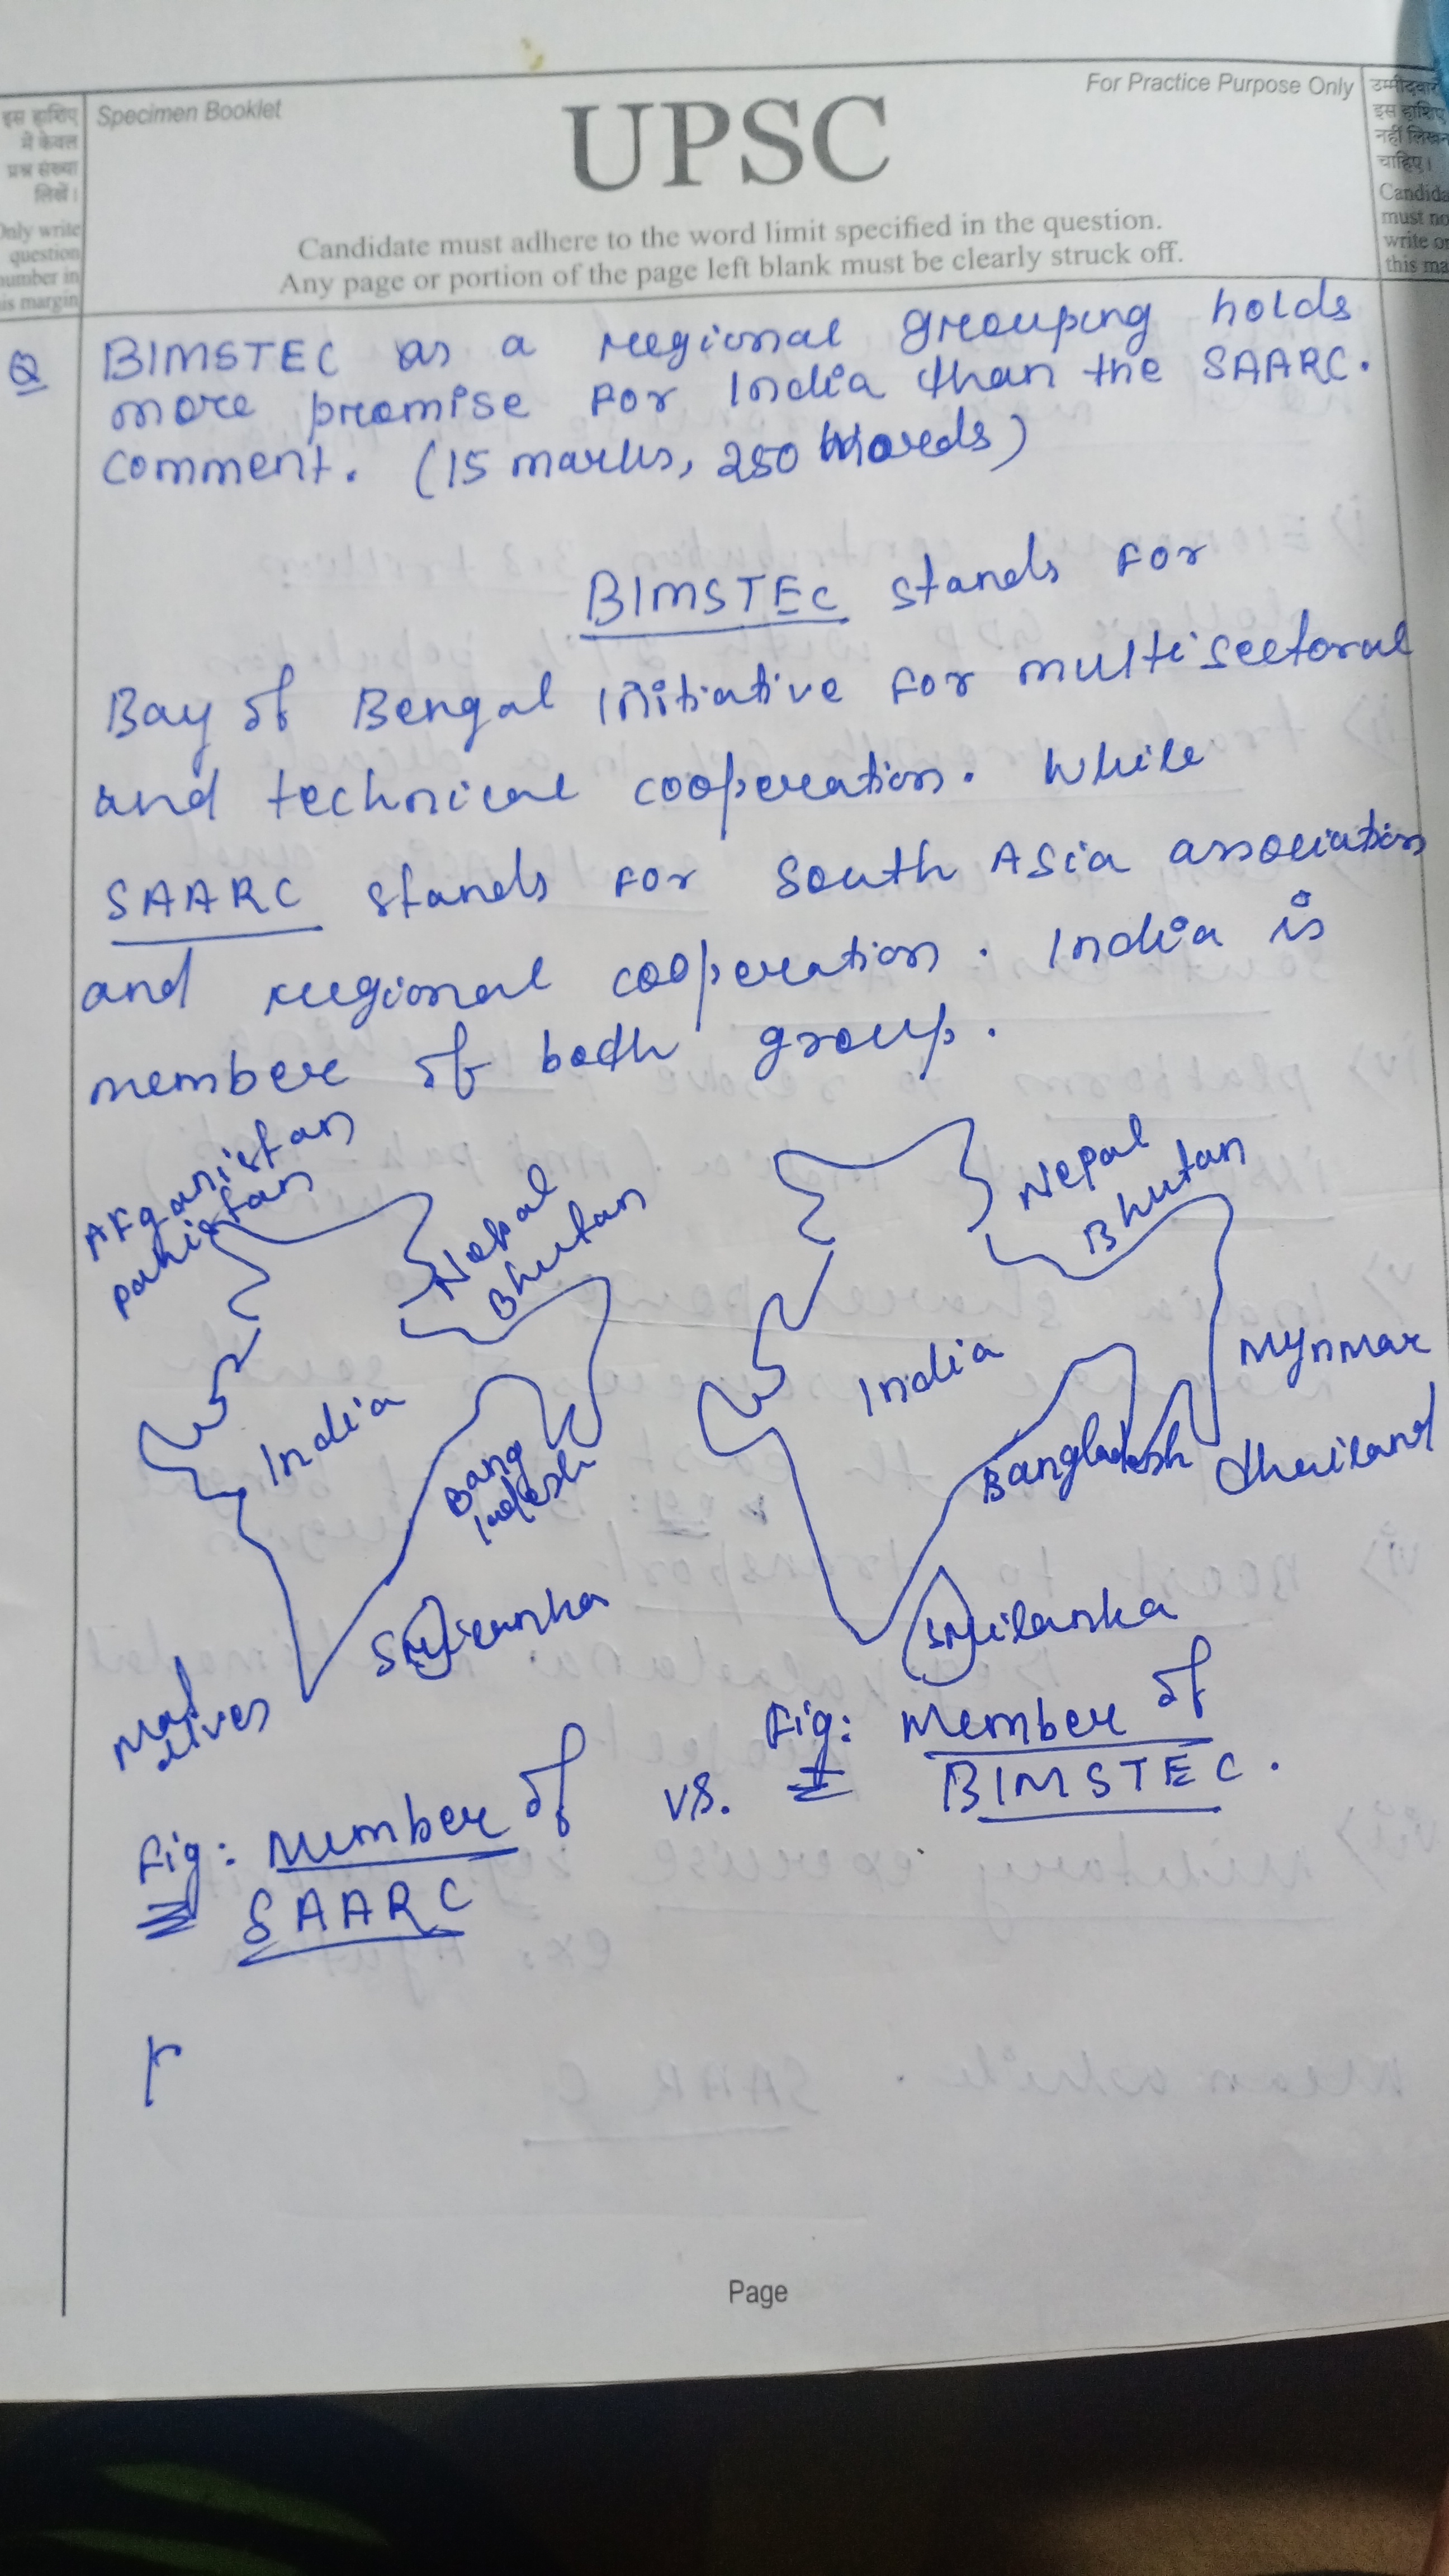 इस हाशिए
में केवल
प्रश्न संख्या
लिखें।
Only write
question
number in
is margin
Specimen Booklet
UPSC
For Practice Purpose Only
उम्मीदवार
इस हाशिए
नहीं लिखन
चाहिए।
Candida
must no
write o
this ma
Candidate must adhere to the word limit specified in the question.
Any page or portion of the page left blank must be clearly struck off.
Q BIMSTEC as a regional grouping holds
more promise for India than the SAARC.
comment. (15 marks, 250 words)
BIMSTEC stands for
Bay of Bengal Initiative for multisectoral
and technical cooperation. While
SAARC stands for South Asia association
and regional cooperation. India is
member of both group.
Afganistan
pakistan
Nepal
Bhutan
India
Bang
ladesh
Srilanka
Mal
dives
Fig: Member of
SAARC
vs.
Nepal
Bhutan
India
Mynmar
Bangladesh
thailand
Srilanka
Fig: Member of
BIMSTEC.
Page